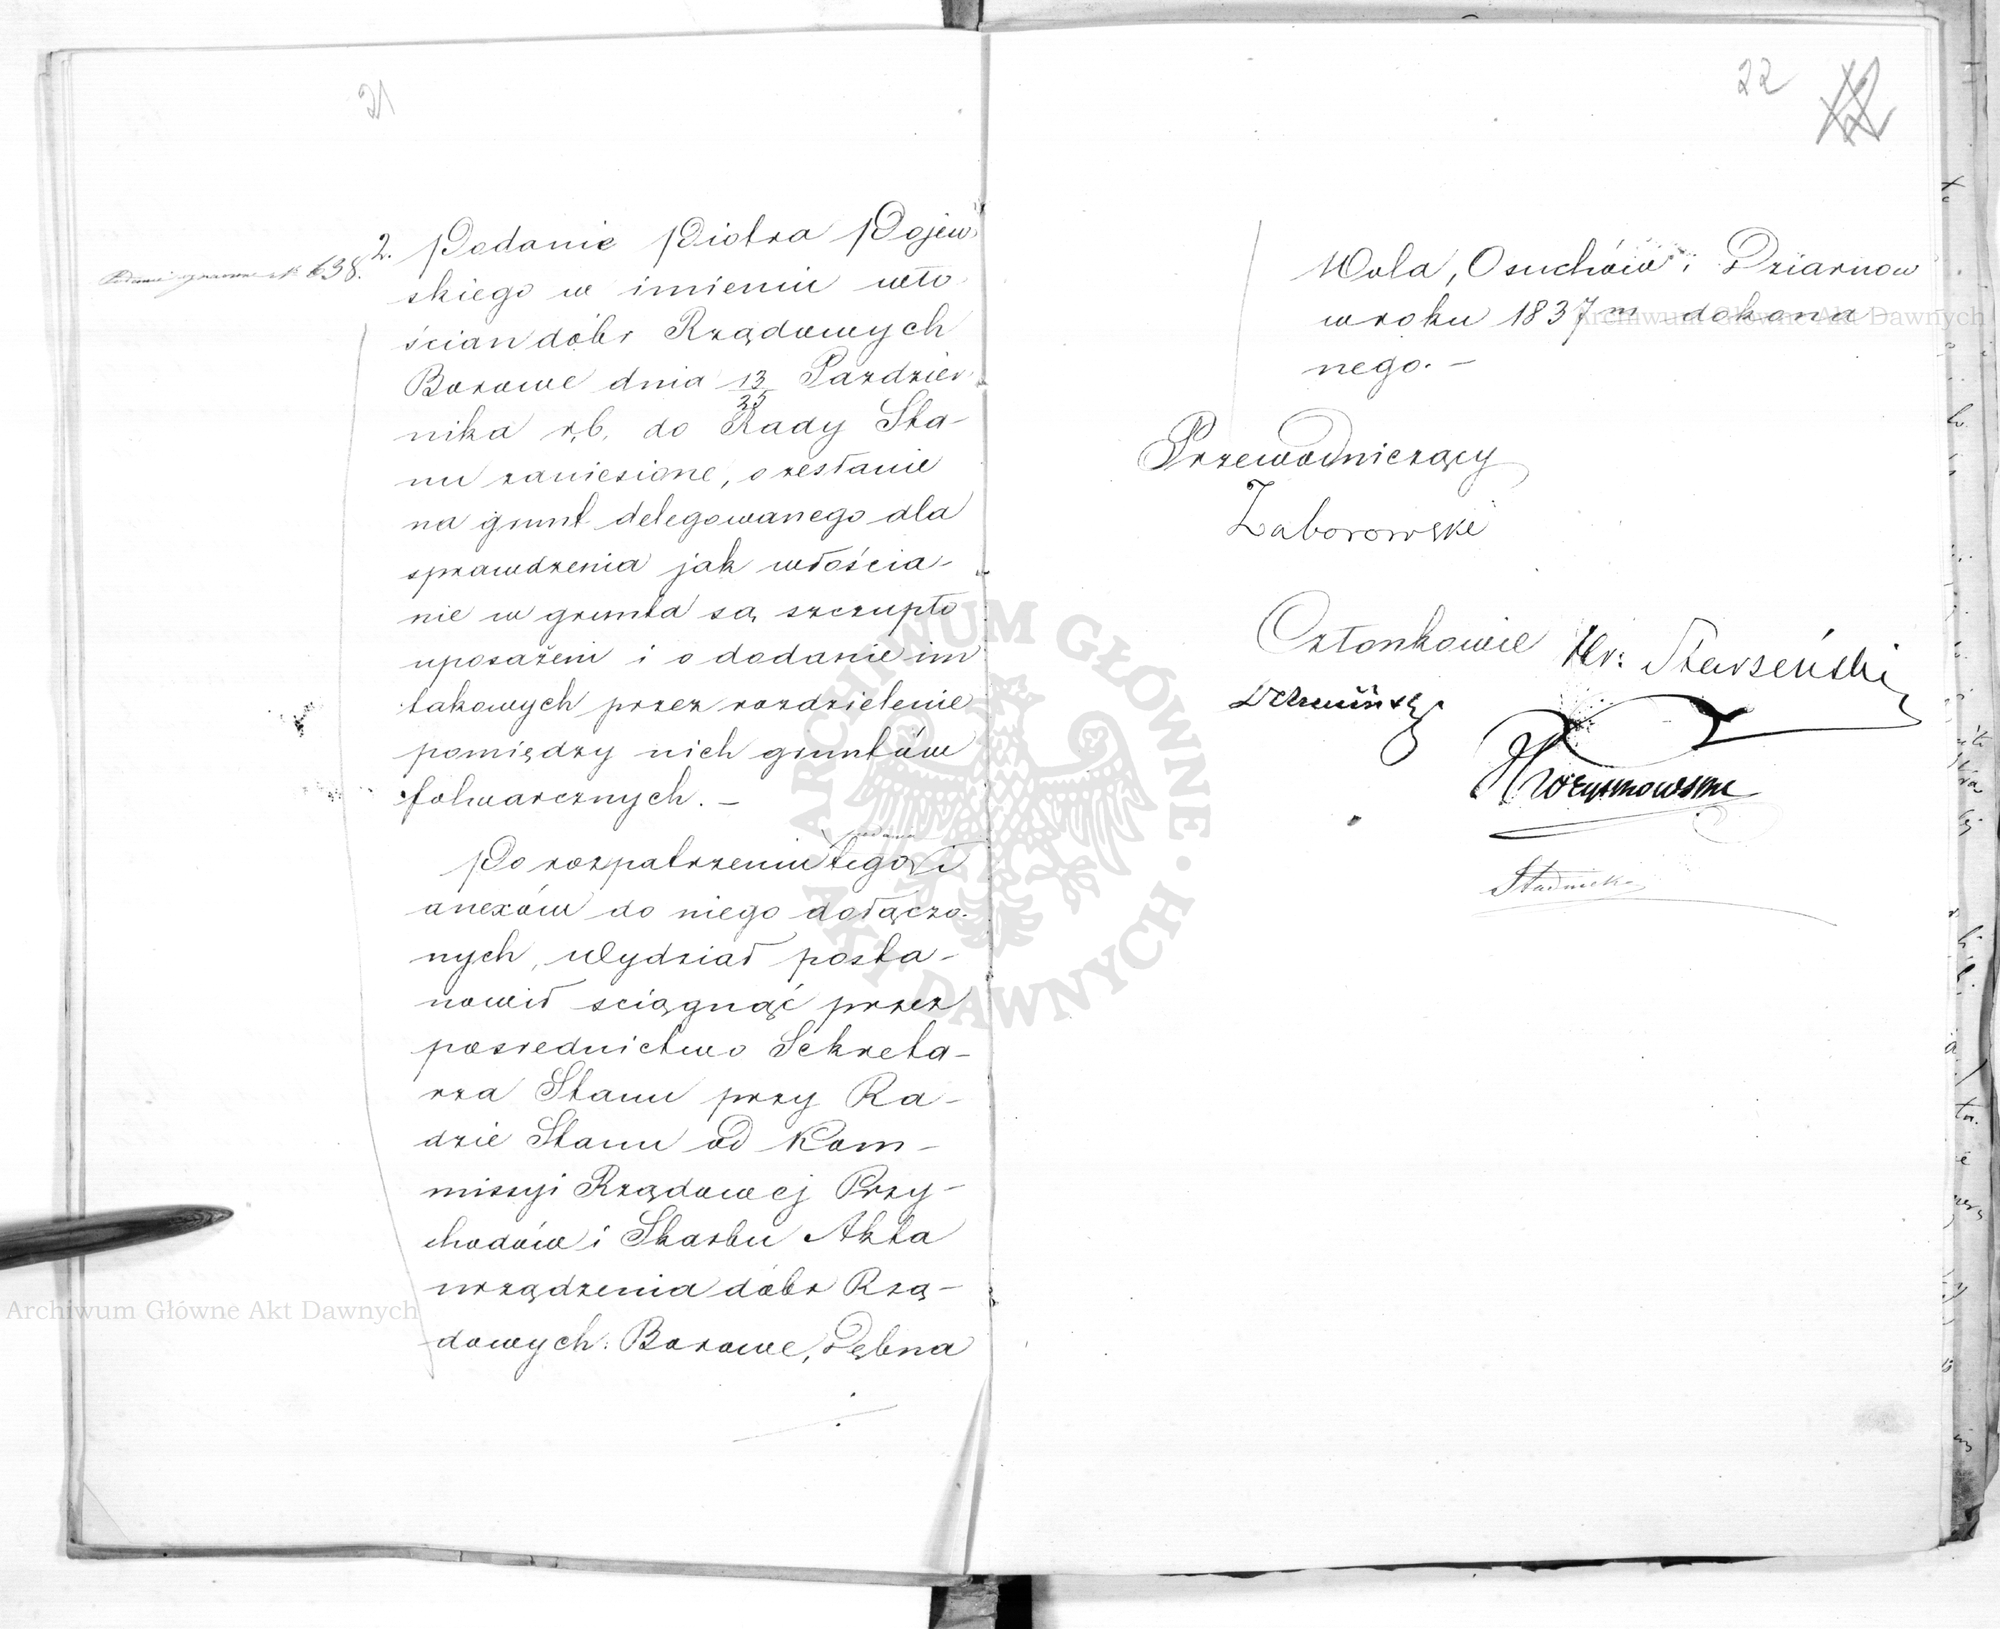 21
638.
2. Podanie Piotra Pojew
skiego w imieniu wło
ścian dóbr Rządowych
Borowe dnia 13/25 Paździer
nika r.b. do Rady Sta-
nu zaniesione, o zesłanie
na grunt delegowanego dla
sprawdzenia jak włościa-
nie w grunta są szczupło
uposażeni i o dodanie im
takowych przez rozdzielenie
pomiędzy nich gruntów
folwarcznych. —
podania
Po rozpatrzeniu tego i
anexów do niego dołączo-
nych, Wydział posta-
nowił sciągnąć przez
posrednictwo Sekreta-
rza Stanu przy Ra-
dzie Stanu od Kom-
missyi Rządowej Przy-
chodów i Skarbu Akta
urządzenia dóbr Rzą-
dowych: Borowe, Dębna
22
Wola, Osuchów i Dziarnow
w roku 1837 m dokona-
nego. —
Przewodniczący
Zaborowski
Członkowie Hr: Starzeński
Stadnicki
Archiwum Główne Akt Dawnych
Archiwum Główne Akt Dawnych
ARCHIWUM GŁÓWNE AKT DAWNYCH